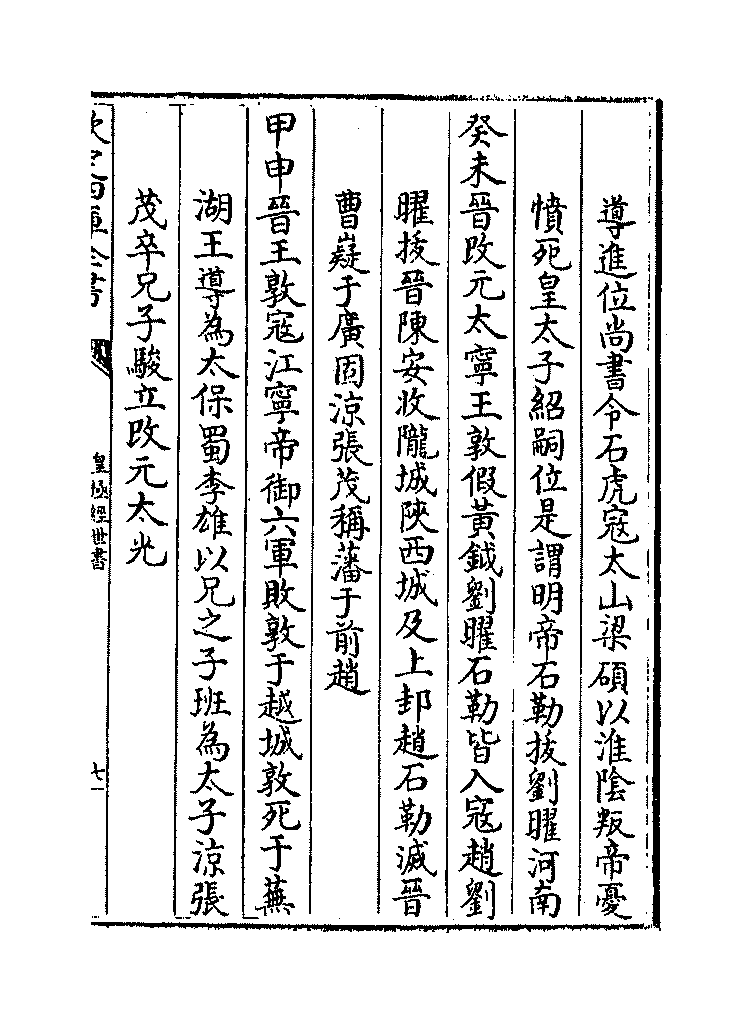 導進位尚書令石虎寇太山梁碩以淮陰叛帝憂
憤死皇太子紹嗣位是謂明帝石勒拔劉曜河南
癸未晉改元太寧王敦假黃鉞劉曜石勒皆入寇趙劉
曜拔晉陳安收隴城陝西城及上邽趙石勒滅晉
曹嶷于廣固涼張茂稱藩于前趙
甲申晉王敦寇江寧帝御六軍敗敦于越城敦死于蕪
湖王導為太保蜀李雄以兄之子班為太子涼張
茂卒兄子駿立改元太光
欽定四庫全書
皇極經世書